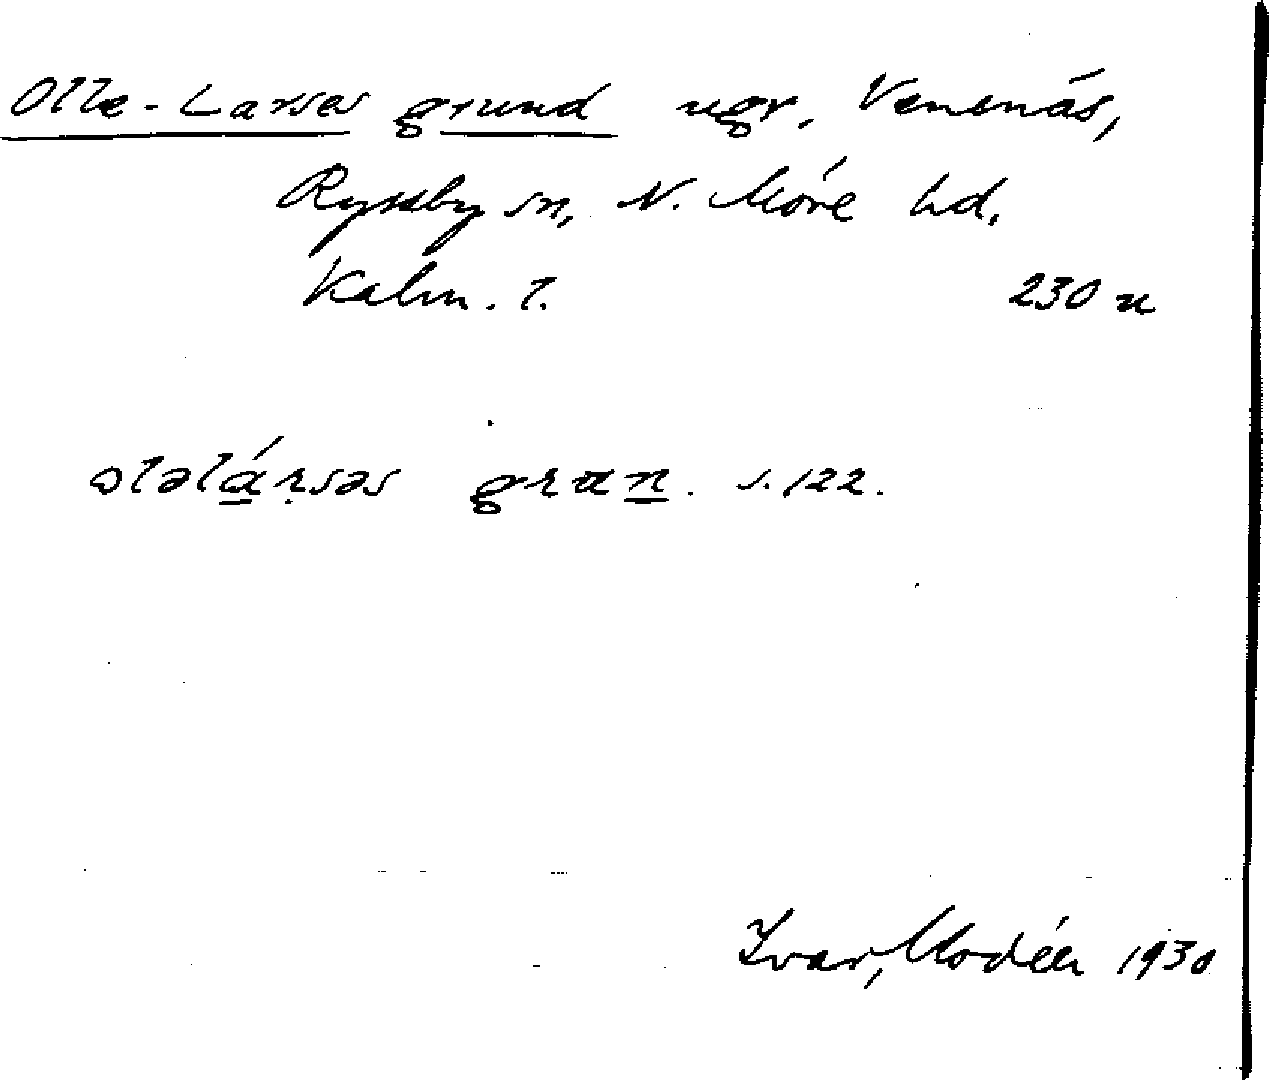 Olle-Larses grund ugr, Venenäs,
Ryssby sn, N. Möre hd,
Kalm. l. 230 u
ɔləlársəs gran. s. 122.
Ivar Modéer 1930